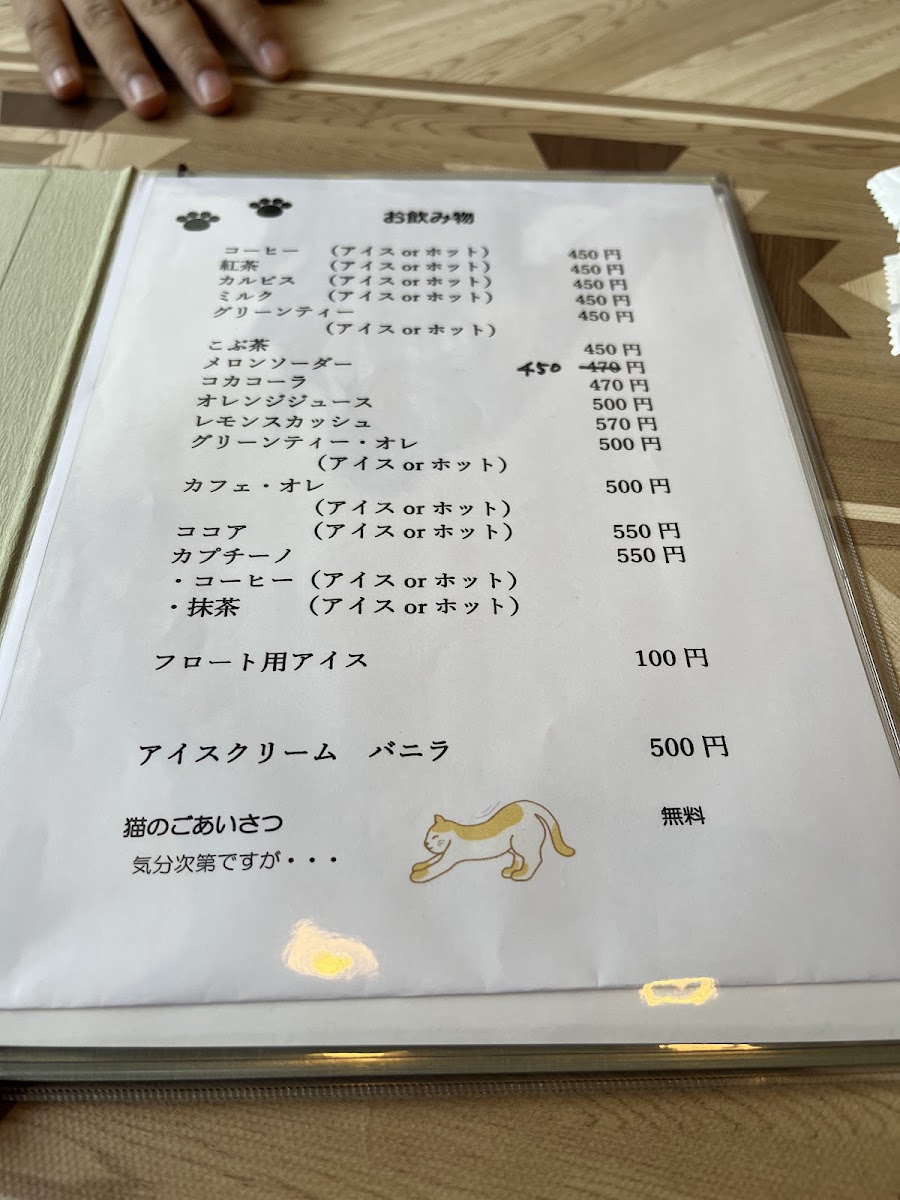 お飲み物
コーヒー （アイス or ホット） 450 円
紅茶 （アイス or ホット） 450 円
カルピス （アイス or ホット） 450 円
ミルク （アイス or ホット） 450 円
グリーンティー 450 円
（アイス or ホット）
こぶ茶 450 円
メロンソーダー 450 470 円
コカコーラ 470 円
オレンジジュース 500 円
レモンスカッシュ 570 円
グリーンティー・オレ 500 円
（アイス or ホット）
カフェ・オレ 500 円
（アイス or ホット）
ココア （アイス or ホット） 550 円
カプチーノ 550 円
・コーヒー（アイス or ホット）
・抹茶 （アイス or ホット）
フロート用アイス 100 円
アイスクリーム バニラ 500 円
猫のごあいさつ 無料
気分次第ですが・・・